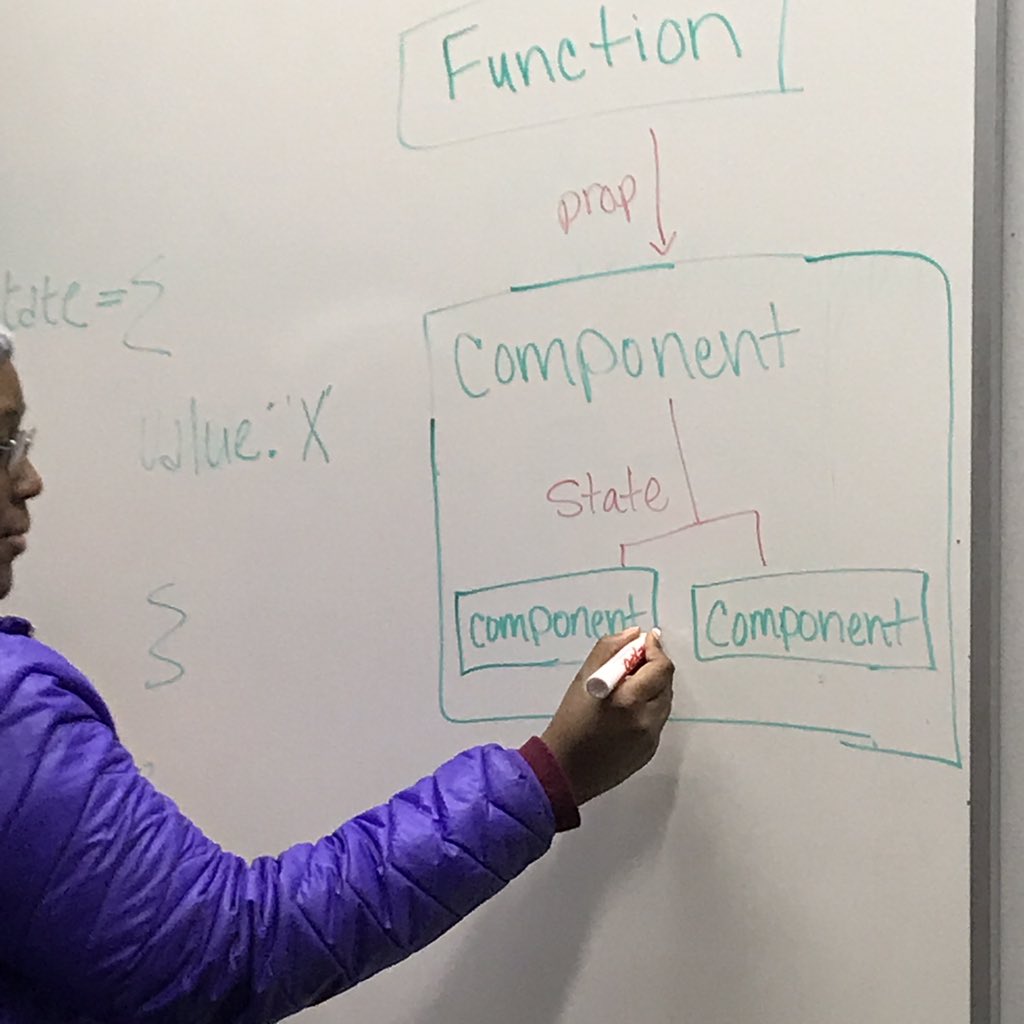 Function
prop
tate = {
Component
value: 'X'
State
component
Component
}